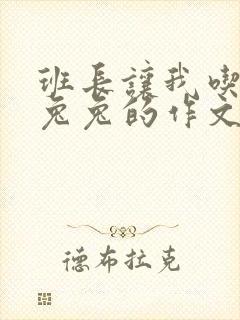 班长让我喫
兔兔的作文
德布拉克